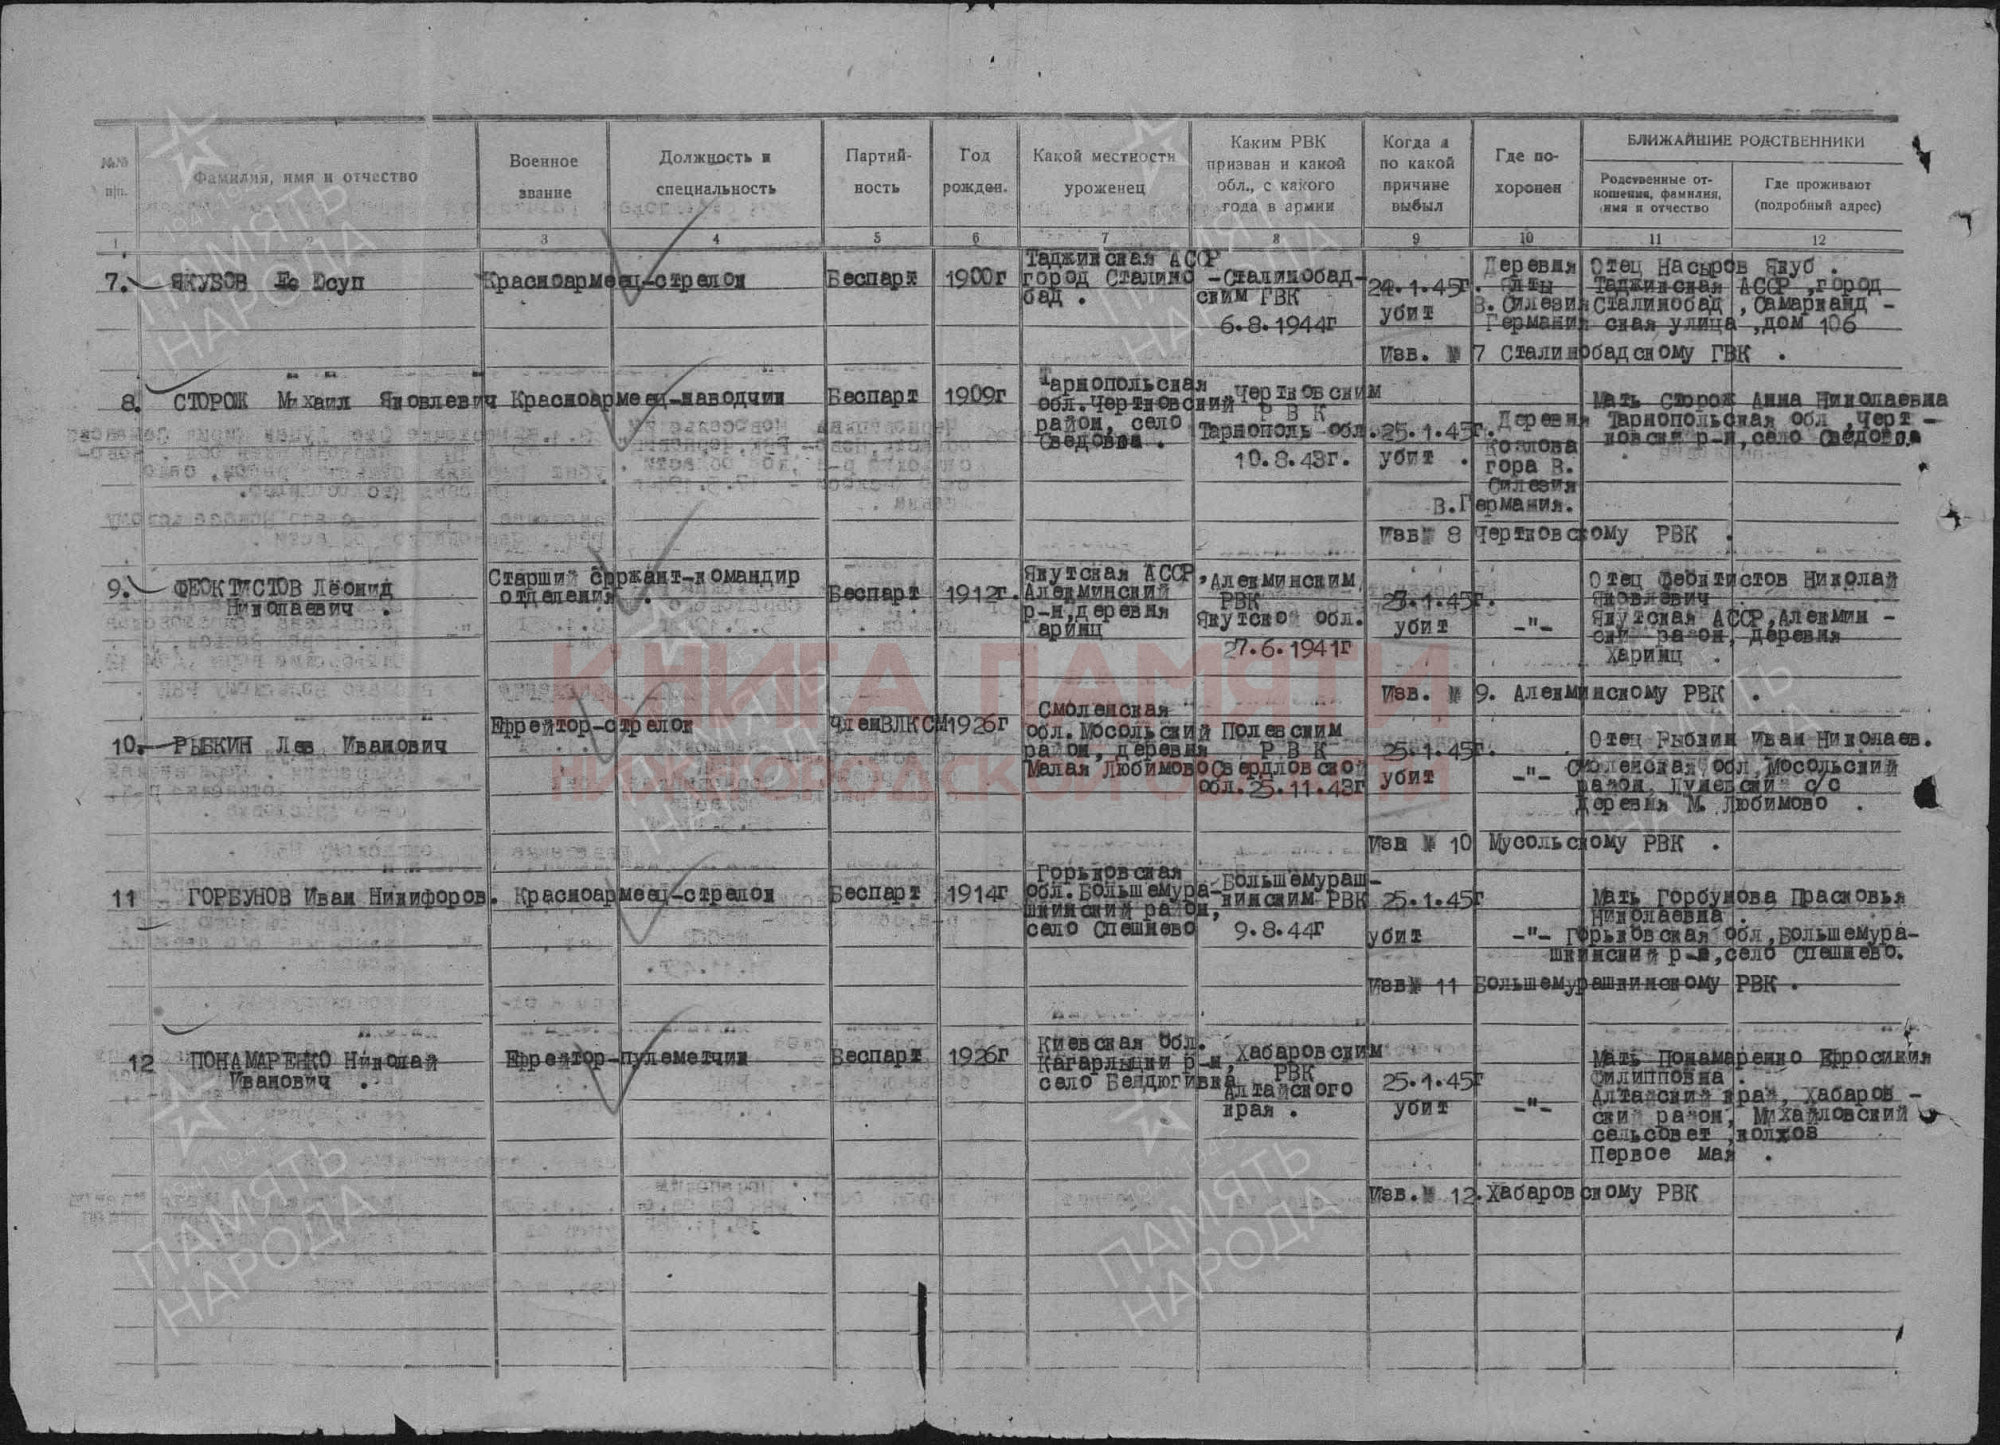 №№ п/п.
Фамилия, имя и отчество
Военное звание
Должность и специальность
Партий-ность
Год рожден.
Какой местности уроженец
Каким РВК призван и какой обл., с какого года в армии
Когда и по какой причине выбыл
Где по-хоронен
БЛИЖАЙШИЕ РОДСТВЕННИКИ
Родственные от-ношения, фамилия, имя и отчество
Где проживают (подробный адрес)
1 2 3 4 5 6 7 8 9 10 11 12
7. ЯКУБОВ Юсуп
Красноармеец-стрелок
Беспарт
1900г
Таджикская АССР
город Сталино -
бад .
Сталинобад-
ским ГВК
6.8.1944г
24.1.45г.
убит
Деревня
Ялты
В. Силезия
Германия
Отец Насыров Якуб .
Таджикская АССР ,город
Сталинобад , Самарканд -
ская улица ,дом 106
Изв. № 7 Сталинобадскому ГВК .
8. СТОРОЖ Михаил Яковлевич
Красноармеец-наводчик
Беспарт
1909г
Тарнопольская
обл.Чертковский
район, село
Сведовка .
Чертковским
Р В К
Тарнополь обл.
10.8.43г.
25.1.45г.
убит .
Деревня
Козлова
гора В.
Силезия
В.Германия.
Мать Сторож Анна Николаевна
Тарнопольская обл ,Черт -
ковский р-н,село Сведовка
Изв№ 8 Чертковскому РВК .
9. ФЕОКТИСТОВ Леонид
Николаевич .
Старший сержант-командир
отделения .
Беспарт
1912г.
Якутская АССР,
Алекминский
р-н,деревня
Харинц
Алекминским
РВК
Якутской обл.
27.6.1941г
25.1.45г.
убит
-"-
Отец Феоктистов Николай
Яковлевич
Якутская АССР,Алекмин -
ский район, деревня
Харинц .
Изв. № 9. Алекминскому РВК .
10. РЫБКИН Лев Иванович
Ефрейтор-стрелок
ЧленВЛКСМ
1926г
Смоленская
обл. Мосольский
район, деревня
Малая Любимово
Полевским
Р В К
Свердловской
обл.25.11.43г
25.1.45г.
убит
-"-
Отец Рыбкин Иван Николаев.
Смоленская обл,Мосольский
район, с/с
Деревня М. Любимово .
Изв № 10 Мусольскому РВК .
11 ГОРБУНОВ Иван Никифоров.
Красноармеец-стрелок
Беспарт
1914г
Горьковская
обл.Большемура-
шкинский район,
село Спешнево
Большемураш-
кинским РВК
9.8.44г
25.1.45г
убит
-"-
Мать Горбунова Прасковья
Николаевна .
Горьковская обл,Большемура-
шкинский р-н,село Спешнево.
Изв№ 11 Большемурашкинскому РВК .
12 ПОНАМАРЕНКО Николай
Иванович .
Ефрейтор-пулеметчик
Беспарт
1926г
Киевская обл.
Кагарлыцки р-н,
село Бендюгивка
Хабаровским
РВК
Алтайского
края .
25.1.45г
убит
-"-
Мать Понамаренко Ефросиния
Филипповна .
Алтайский край, Хабаров -
ский район, Михайловский
сельсовет ,колхоз
Первое мая .
Изв.№ 12.Хабаровскому РВК
КНИГА ПАМЯТИ
НИЖЕГОРОДСКОЙ ОБЛАСТИ
1941-1945
ПАМЯТЬ
НАРОДА